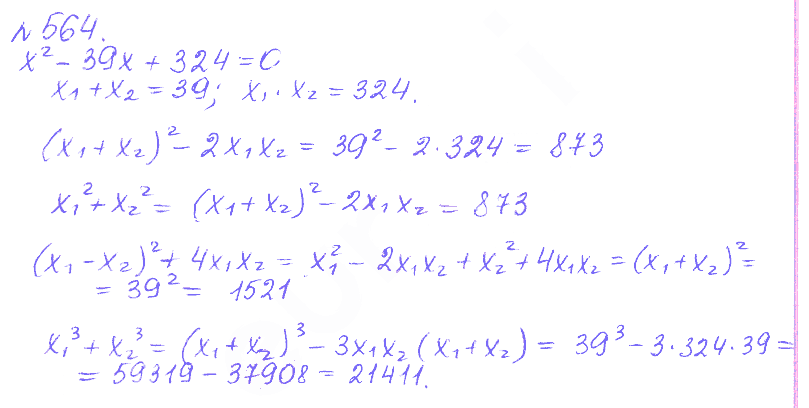 № 564.
x² - 39x + 324 = 0
x₁ + x₂ = 39; x₁ · x₂ = 324.
(x₁ + x₂)² - 2x₁x₂ = 39² - 2·324 = 873
x₁² + x₂² = (x₁ + x₂)² - 2x₁x₂ = 873
(x₁ - x₂)² + 4x₁x₂ = x₁² - 2x₁x₂ + x₂² + 4x₁x₂ = (x₁ + x₂)² =
= 39² = 1521
x₁³ + x₂³ = (x₁ + x₂)³ - 3x₁x₂(x₁ + x₂) = 39³ - 3·324·39 =
= 59319 - 37908 = 21411.